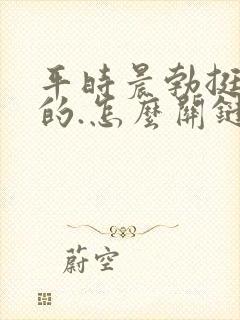 平時晨勃挺
的.怎麼關鍵
蔚空